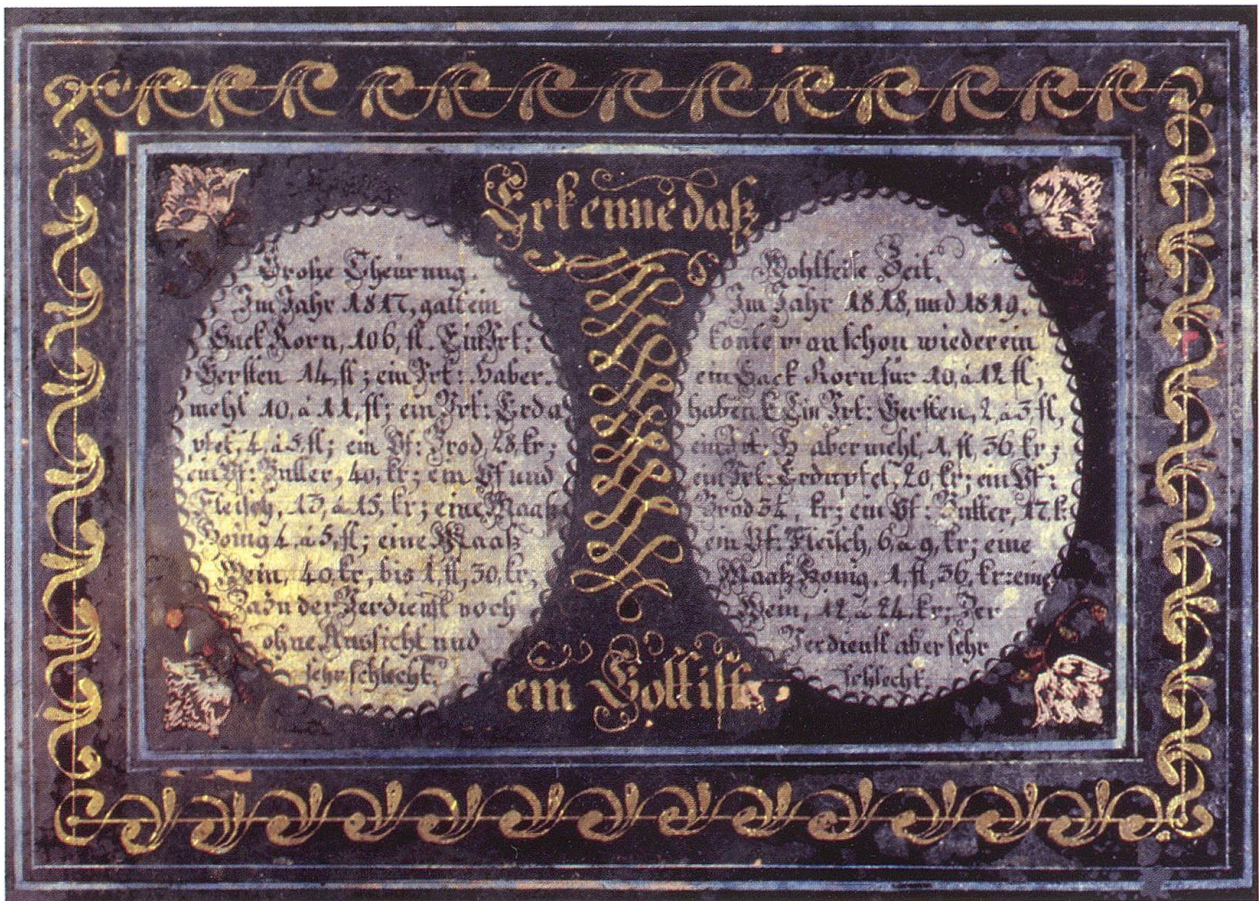 Erkenne daß
Große Theurung.
Im Jahr 1817, galt ein
Sack Korn, 106, fl. Ein Vrt:
Gersten 14, fl; ein Vrt: Haber-
mehl 10, à 11, fl; ein Vrt: Erda
pfel, 4, à 5 fl; ein Pf: Brod, 28, kr;
ein Pf: Butter, 40, kr; ein Pf und
Fleisch, 13, à 15, kr; eine Maaß
Honig 4, à 5, fl; eine Maaß
Wein, 40, kr, bis 1, fl, 30, kr,
der Verdienst noch
ohne Aussicht und
sehr schlecht.
Wohlfeile Zeit.
Im Jahr 1818, und 1819.
konte man schon wieder ein
ein Sack Korn für 10, à 12 fl,
haben Ein Vrt: Gersten, 2, à 3 fl,
ein Vrt: Habermehl, 1, fl, 36, kr;
ein Vrt: Erdäpfel, 20, kr; ein Pf:
Brod 34, kr; ein Pf: Butter, 17, k
ein Pf: Fleisch, 6, à 9, kr; eine
Maaß Honig, 1, fl, 36, kr: eine
Wein, 12, à 24, kr; Der
Verdienst aber sehr
schlecht.
ein Gott ist.